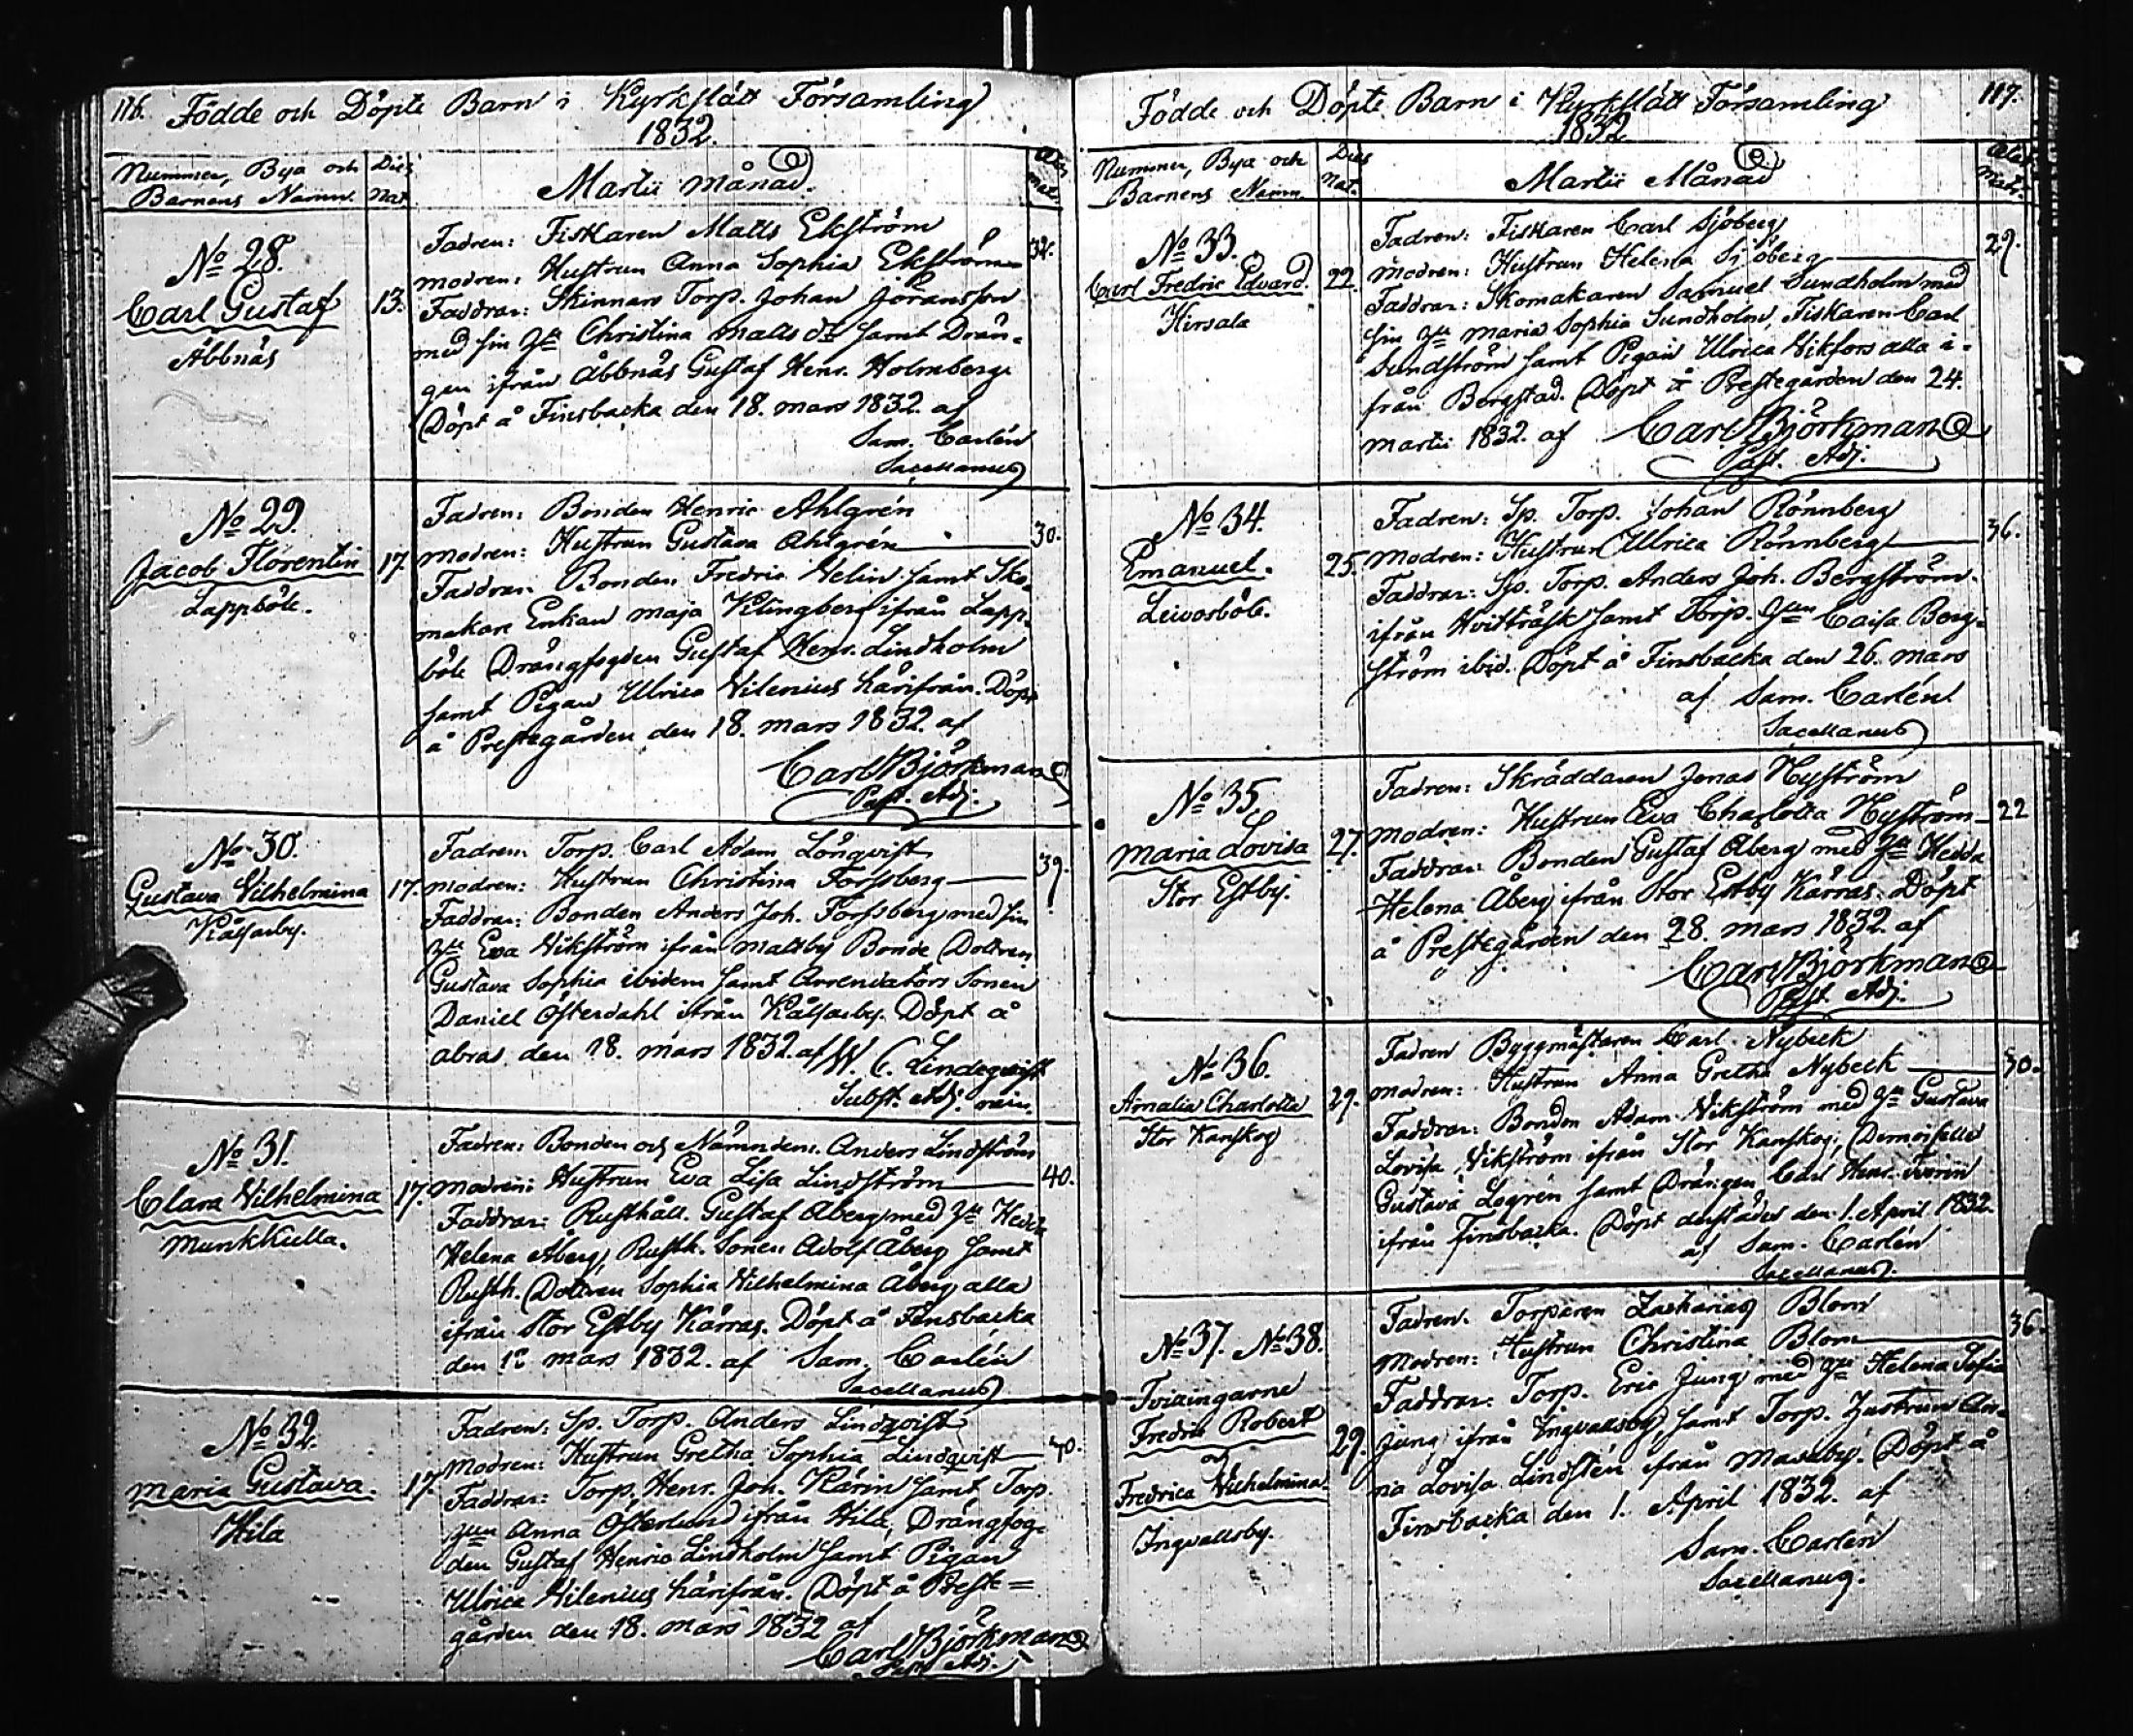 116. Födde och Döpte Barn i Kyrkslätt Församling
1832.
Nummer, Bya och
Barnens Namn.
Dies
Nat.
Martii månad.
No 28.
Carl Gustaf
Åbbnäs
13.
Fadren: Fiskaren Matts Ekström
modren: Hustrun Anna Sophia Ekström
Faddrar: Skinnare Torp. Johan Göransson
med sin Hu Christina Matts dr samt Drän-
gen ifrån Åbbnäs Gustaf Henr. Holmberg
Döpt å Finsbacka den 18. mars 1832. af
Sam. Carlén
Sacellanus
No 29.
Jacob Florentin
Lappböle.
17.
Fadren: Bonden Henric Ahlgrén
modren: Hustrun Gustava Ahlgrén
30.
Faddrar: Bonden Fredric Helin samt Sko-
makare Enkan Maja Klingberg ifrån Lapp-
böle Drängfogden Gustaf Henr. Lindholm
samt Pigan Ulrica Vilenius härifrån. Döpt
å Prestegården den 18. mars 1832. af
Carl Björkman
Past. Adj.
No 30.
Gustava Vilhelmina
17.
Fadren: Torp. Carl Adam Lönqvist
modren: Hustrun Christina Forssberg
39.
Faddrar: Bonden Anders Joh. Forssberg med sin
Hu Eva Vikström ifrån Mattsby Bonde Dottren
Gustava Sophia ibidem samt Arrendators Sonen
Daniel Österdahl ifrån
Döpt å
abras den 18. mars 1832. af W. C. Lindeqvist
Subst. Adj. min.
No 31.
Clara Vilhelmina
Munkkulla.
17.
Fadren: Bonden och Nämndem. Anders Lindström
modren: Hustrun Eva Lisa Lindström
40.
Faddrar: Rusthåll. Gustaf Åberg med Hu Hedda
Helena Åberg, Rusth. Sonen Adolf Åberg samt
Rusth. Dottren Sophia Vilhelmina Åberg alla
ifrån Stor Estby Kärras. Döpt å Finsbacka
den mars 1832. af Sam. Carlén
Sacellanus
No 32.
Maria Gustava.
Hila
17.
Fadren: Sp. Torp. Anders Lindqvist
Modren: Hustrun Gretha Sophia Lindqvist
Faddrar: Torp. Henr. Joh. Kärin samt Torp.
Hun Anna Österlund ifrån Hila, Drängfog-
den Gustaf Henric Lindholm samt Pigan
Ulrica Vilenius härifrån. Döpt å Preste=
gården den 18. mars 1832 af
Carl Björkman
Past. Adj.
Födde och Döpte Barn i Kyrkslätt Församling
117.
1832
Nummer, Bya och
Barnens Namn.
Dies
Nat.
Martii Månad
No 33.
Carl Fredric Edvard.
Hirsala
22.
Fadren: Fiskaren Carl Sjöberg
Modren: Hustrun Helena Sjöberg
29.
Faddrar: Skomakaren Samuel Sundholm med
sin Hu Maria Sophia Sundholm, Fiskaren Carl
Sundström samt Pigan Ulrica Vikfors alla i-
från Bergstad. Döpt å Prestegården den 24.
martii 1832. af Carl Björkman
Past. Adj.
No 34.
Emanuel.
25.
Fadren: Sp. Torp. Johan Rönnberg
Modren: Hustrun Ulrica Rönnberg
36.
Faddrar: Sp. Torp. Anders Joh. Bergström
ifrån Hvitträsk samt Torp. Hun Caisa Berg-
ström ibid. Döpt å Finsbacka den 26. mars
af Sam. Carlén
Sacellanus
No 35.
Maria Lovisa
Stor Estby.
27.
Fadren: Skräddaren Jonas Nyström
Modren: Hustrun Eva Charlotta Nyström
22
Faddrar: Bonden Gustaf Åberg med Hu Hedda
Helena Åberg ifrån Stor Estby Kärras. Döpt
å Prestegården den 28. mars 1832. af
Carl Björkman
Past. Adj.
No 36.
Amalia Charlotta
Stor Kanskog
29.
Fadren Byggmästaren Carl Nybeck
Modren: Hustrun Anna Gretha Nybeck
Faddrar: Bonden Adam Vikström med Hu Gustava
Lovisa Vikström ifrån Stor Kanskog, Demoiselle
Gustava Legrén samt Drängen Carl Henr.
ifrån Finsbacka. Döpt derstädes den 1. April 1832.
af Sam. Carlén
Sacellanus.
No 37. No 38.
Tvillingarne
Fredric Robert
och
Fredrica Vilhelmina.
Ingvallsby.
29.
Fadren. Torparen Zacharias Blom
Modren: Hustrun Christina Blom
36.
Faddrar: Torp. Eric Jung med Hu Helena Sofia
Jung ifrån Ingvallsby, samt Torp. hustrun Ca-
Lovisa Lindstén ifrån Masaby. Döpt å
Finsbacka den 1. April 1832. af
Sam. Carlén
Sacellanus.